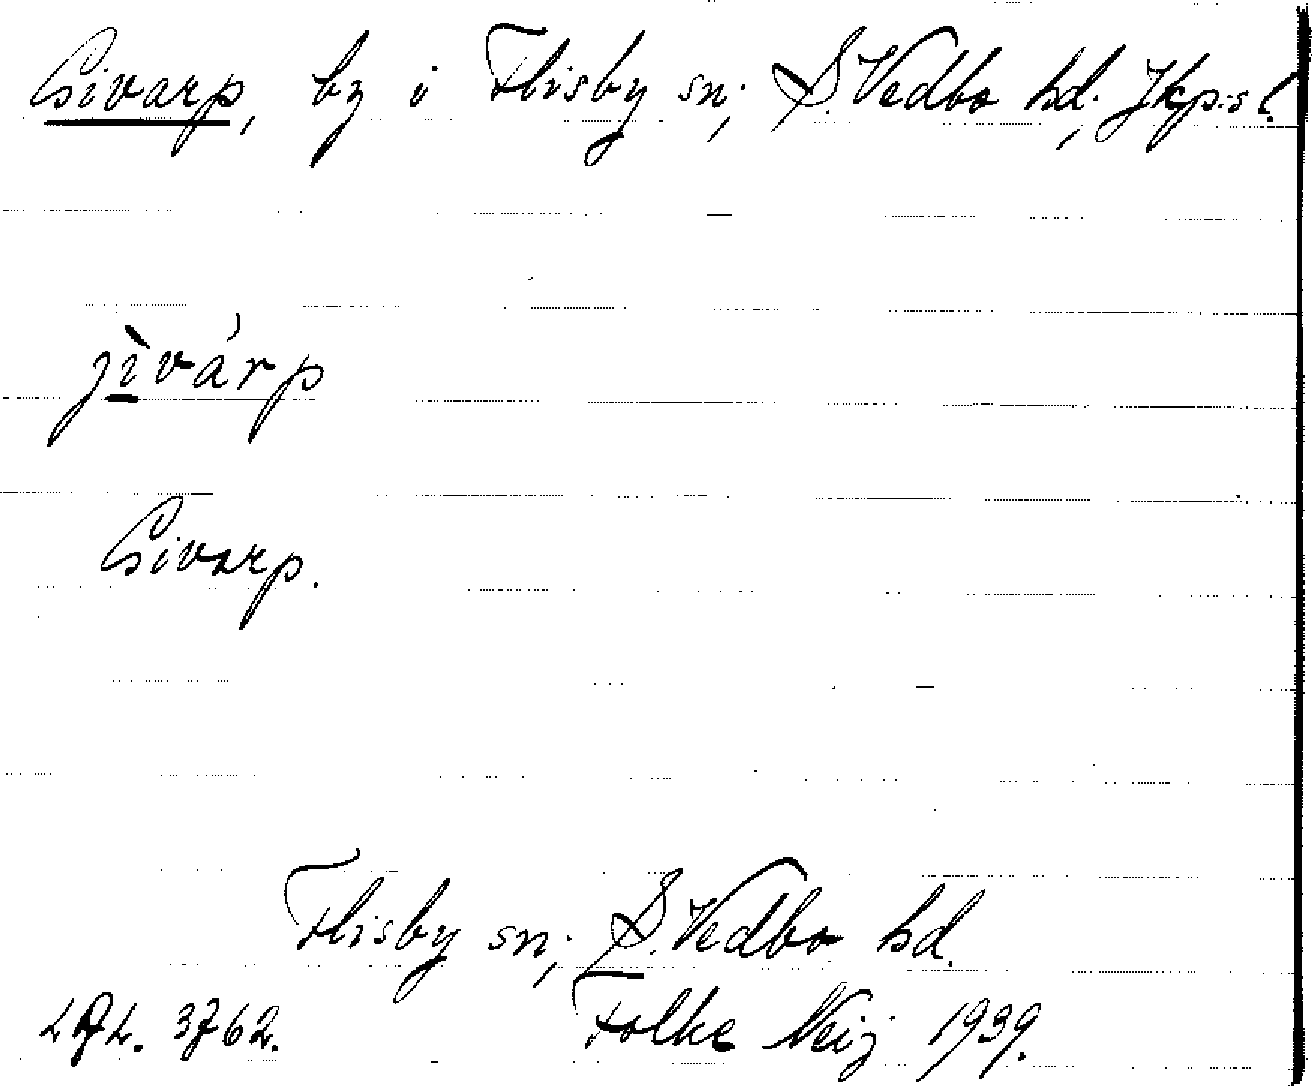 Givarp, by i Flisby sn; S. Vedbo hd. Jkp:s l.
jìvárp
Givarp.
Flisby sn; S. Vedbo hd.
3762. Folke Neij 1939.